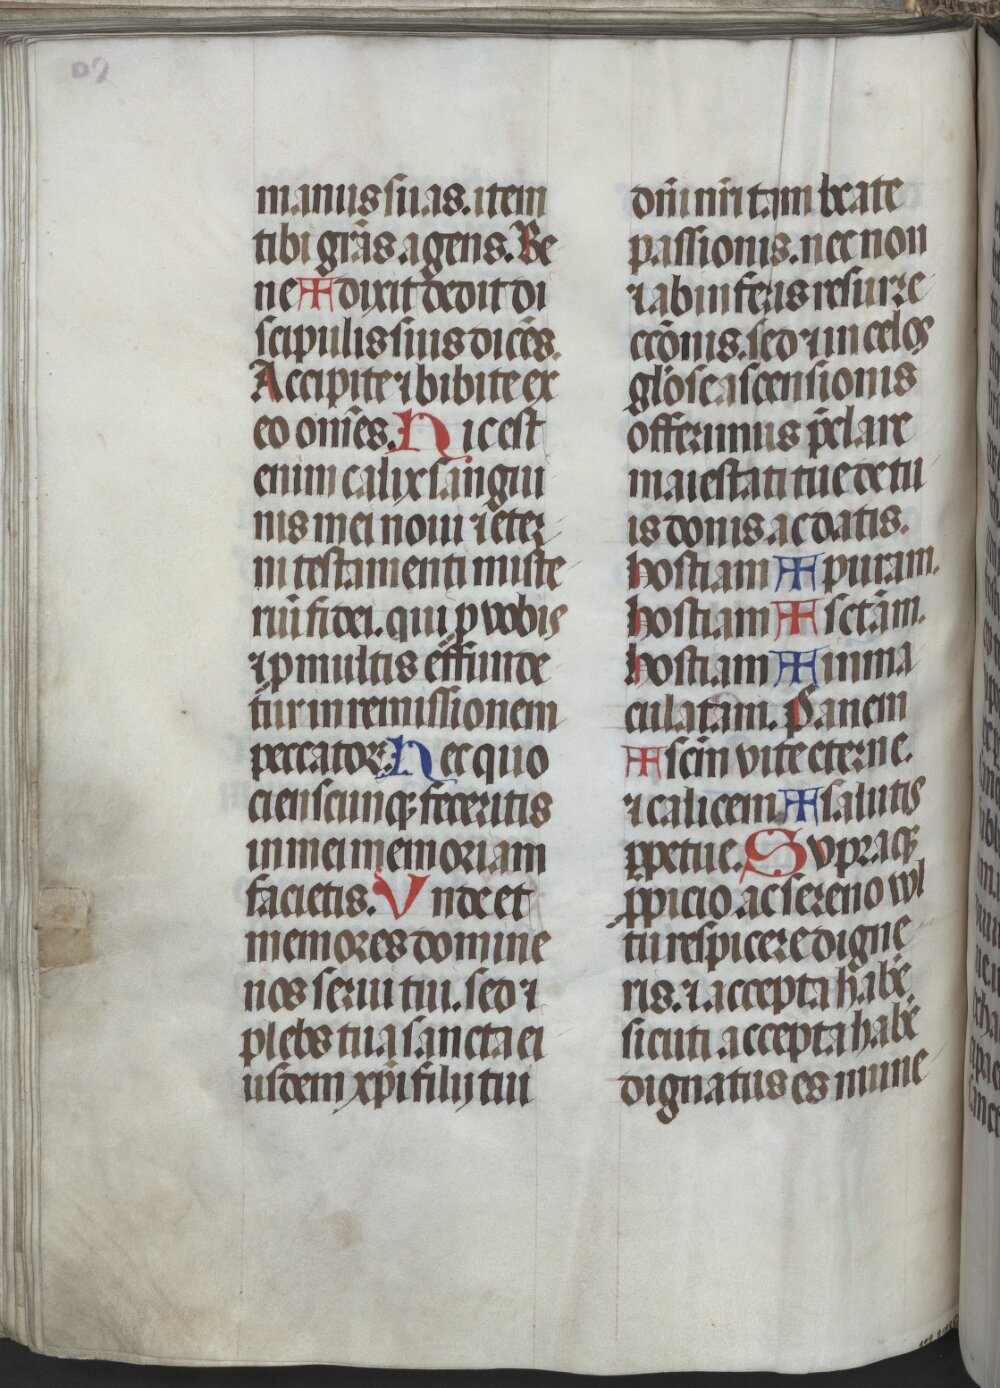 manus suas. item
tibi grãs agens. Be
ne ✠ dixit dedit di
scipulis suis dicẽs.
Accipite ⁊ bibite ex
eo om̃es. Hic est
enim calix sangui
nis mei noui ⁊ eter
ni testamenti miste
riũ fidei. qui ꝓ vobis
⁊ ꝓ multis effunde
tur in remissionem
peccatorꝝ. Hec quo
cienscunqꝫ feceritis
in mei memoriam
facietis. Vnde et
memores domine
nos serui tui. sed ⁊
plebs tua sancta ei
usdem xp̃i filij tui
dñi nr̃i tam beate
passionis. nec non
⁊ ab inferis resurre
cciõnis. sed ⁊ in celos
glõse ascensionis
offerimus p̃clare
maiestati tue de tu
is donis ac datis.
hostiam ✠ puram.
hostiam ✠ sctãm.
hostiam ✠ inma
culatam. Panem
✠ scm̃ vite eterne.
⁊ calicem ✠ salutis
ꝑpetue. Supra qꝫ
ꝓpicio ac sereno vul
tu respicere digne
ris. ⁊ accepta habẽ.
sicuti accepta habẽ
dignatus es mune